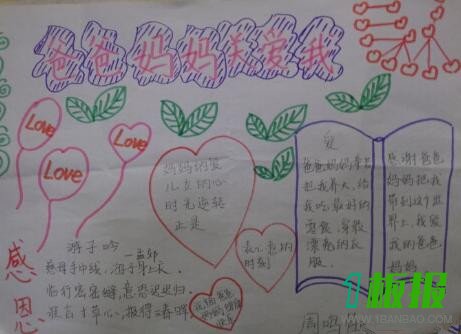 爸爸妈妈关爱我
Love
Love
Love
妈妈的爱
儿女的心
时光逆转
正是
表心意的
时刻
祝福爸爸
爱
爸爸妈妈辛辛
苦把我养大,给
我吃最好的
零食,穿最
漂亮的衣
服。
感谢爸爸
妈妈把我
带到这个世
界上,我爱
我的爸爸
妈妈
感
恩
游子吟
—孟郊
慈母手中线,游子身上衣。
临行密密缝,意恐迟迟归。
谁言寸草心,报得三春晖
1板报
WWW.1BANBAO.COM